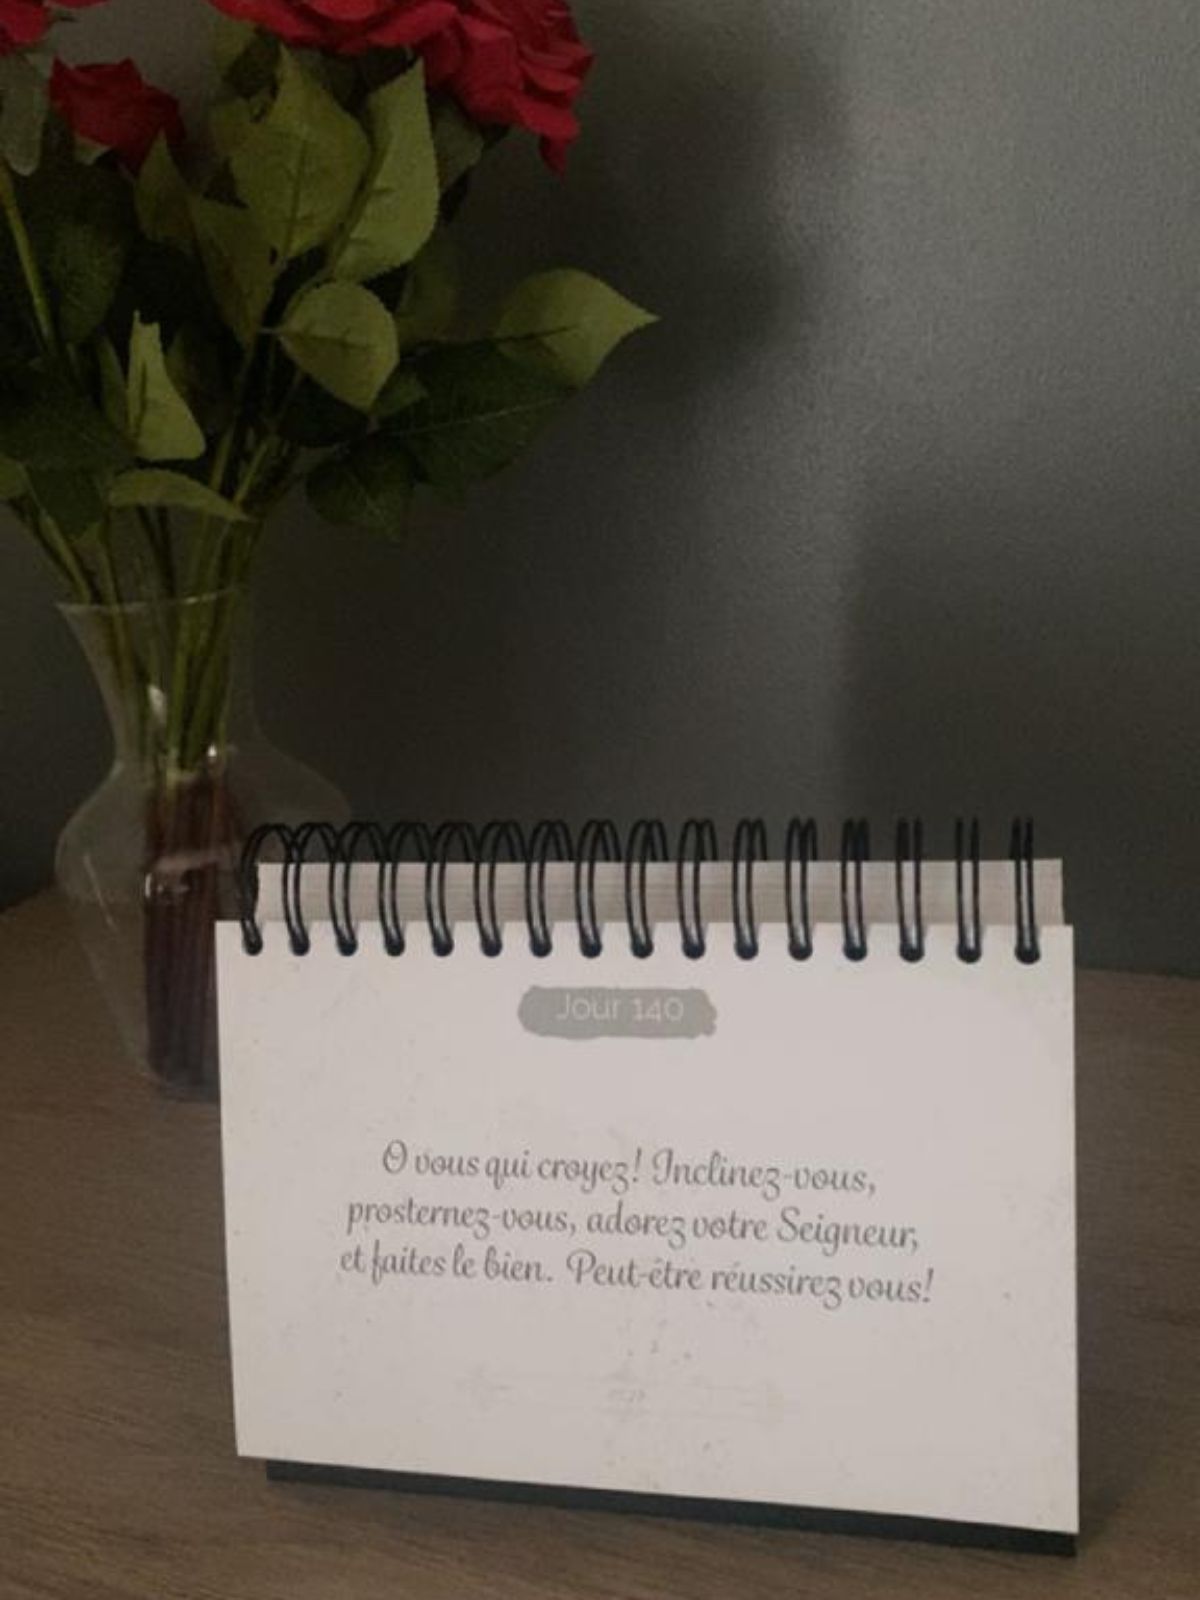 Jour 140
O vous qui croyez! Inclinez-vous,
prosternez-vous, adorez votre Seigneur,
et faites le bien. Peut-être réussirez vous!